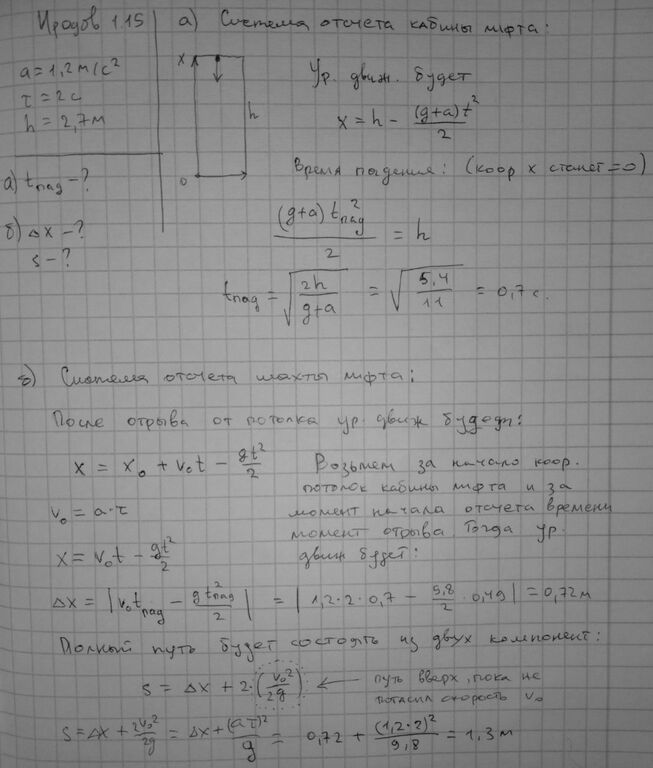 Иродов 1.15
a = 1,2 м/с²
τ = 2 с
h = 2,7 м
а) tпад - ?
б) Δx - ?
s - ?
а) Система отсчета кабины лифта:
x
h
0
Ур. движ. будет
x = h - (g+a)t²/2
Время падения: (коор x станет = 0)
(g+a) tпад²/2 = h
tпад = √(2h/(g+a)) = √(5,4/11) = 0,7 с.
б) Система отсчета шахты лифта:
После отрыва от потолка ур. движ будет:
x = x₀ + v₀t - gt²/2
Возьмем за начало коор.
потолок кабины лифта и за
момент начала отсчета времени
момент отрыва. Тогда ур.
движ будет:
v₀ = a·τ
x = v₀t - gt²/2
Δx = |v₀tпад - gtпад²/2| = |1,2·2·0,7 - 5,8/2 · 0,49| = 0,72 м
Полный путь будет состоять из двух компонент:
s = Δx + 2·(v₀²/2g) ← путь вверх, пока не
погасил скорость v₀
s = Δx + 2v₀²/2g = Δx + (aτ)²/g = 0,72 + (1,2·2)²/9,8 = 1,3 м